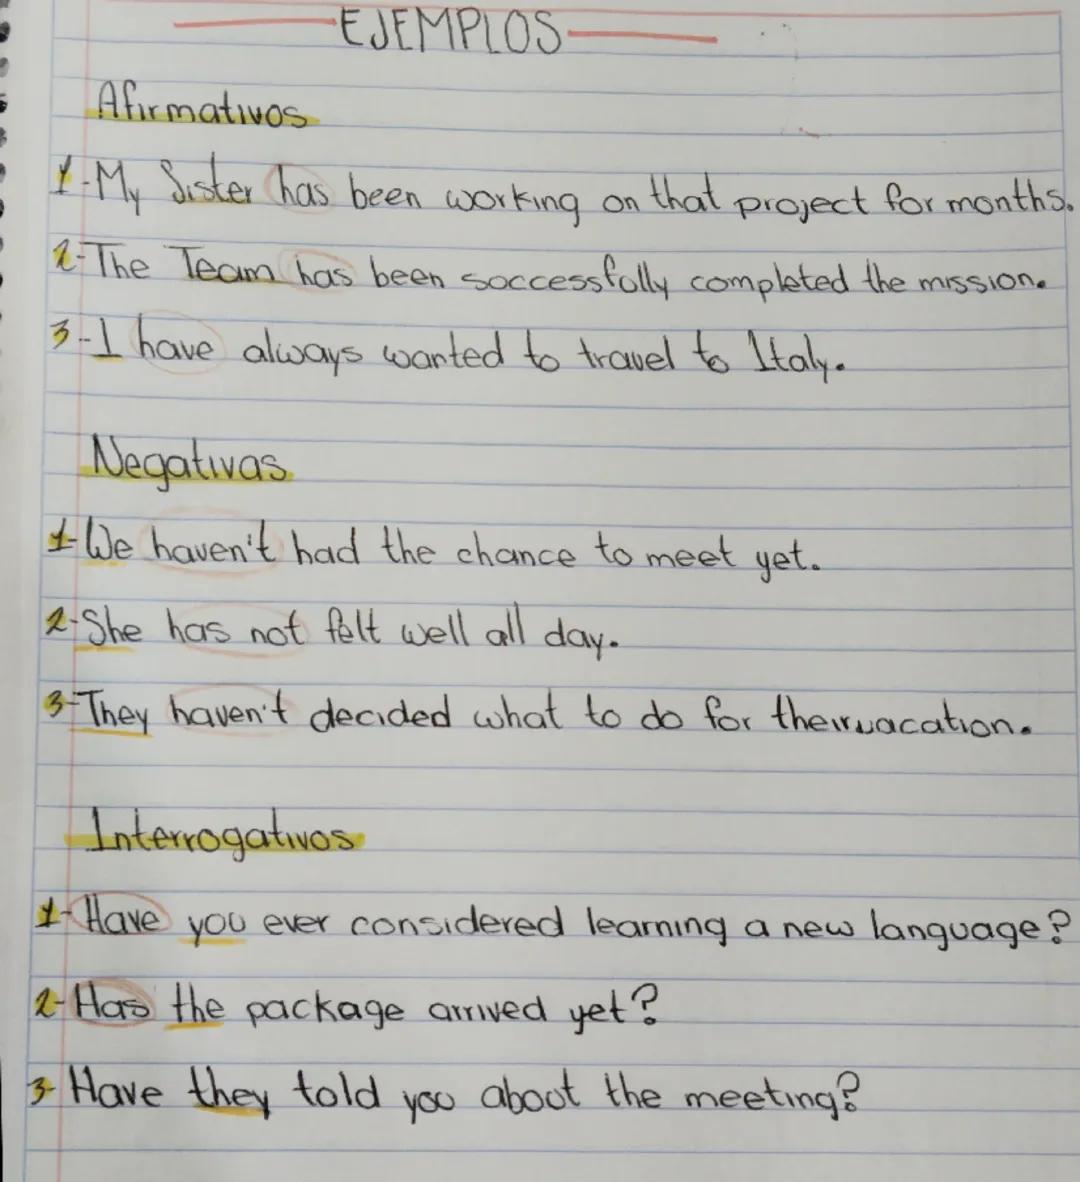 EJEMPLOS
Afirmativos
1-My Sister has been working on that project for months.
2-The Team has been soccessfully completed the mission.
3-I have always wanted to travel to Italy.
Negativas
1-We haven't had the chance to meet yet.
2-She has not felt well all day.
3-They haven't decided what to do for their vacation.
Interrogativos
1-Have you ever considered learning a new language?
2-Has the package arrived yet?
3-Have they told you about the meeting?